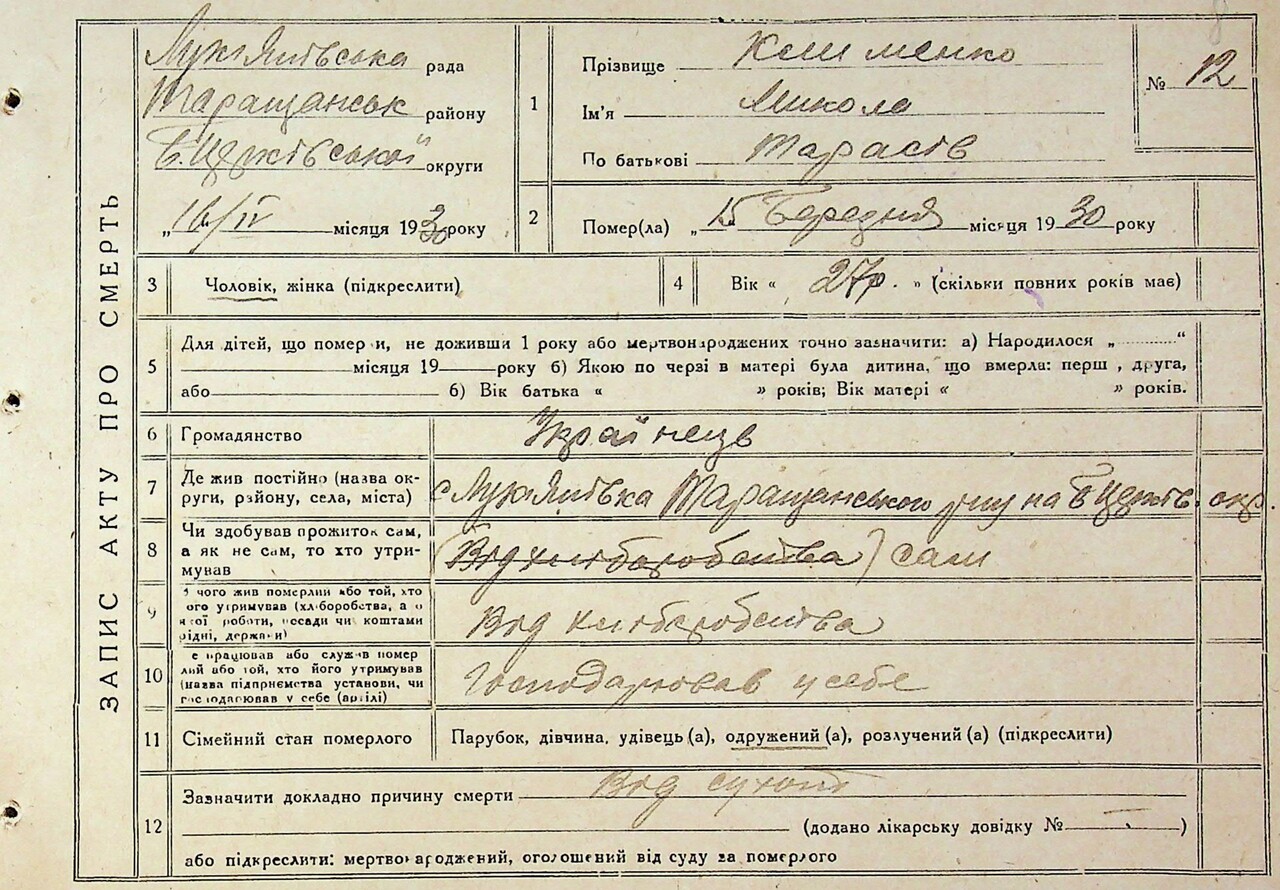 ЗАПИС АКТУ ПРО СМЕРТЬ
Лукʼянівська рада
Таращанськ району
Б.Церківської округи
„16/IV місяця 1930 року
1
Прізвище Клименко
Ім'я Микола
По батькові Тарасів
№ 12
2 Помер(ла) „15 Березня місяця 1930 року
3 Чоловік, жінка (підкреслити)
4 Вік « 27р. » (скільки повних років має)
5
Для дітей, що померли, не доживши 1 року або мертвонароджених точно зазначити: а) Народилося „ “
місяця 19 року б) Якою по черзі в матері була дитина, що вмерла: перш , друга,
або б) Вік батька « » років; Вік матері « » років.
6 Громадянство Українець
7
Де жив постійно (назва ок-
руги, району, села, міста) с Лукʼянівка Таращанського р-ну на Б Церків. окр.
8
Чи здобував прожиток сам,
а як не сам, то хто утри-
мував (Від хліборобства) сам
9
чого жив померлий або той, хто
ого утримував (хліборобства, а о
якої роботи, посади чи коштами
рідні, держави) Від хліборобства
10
е працював або служив помер
лий або той, хто його утримував
(назва підприємства установи, чи
господарював у себе (артілі) Господарював у себе
11 Сімейний стан померлого Парубок, дівчина, удівець (а), одружений (а), розлучений (а) (підкреслити)
12
Зазначити докладно причину смерти Від сухот
(додано лікарську довідку № )
або підкреслити: мертвонароджений, оголошений від суду за померлого